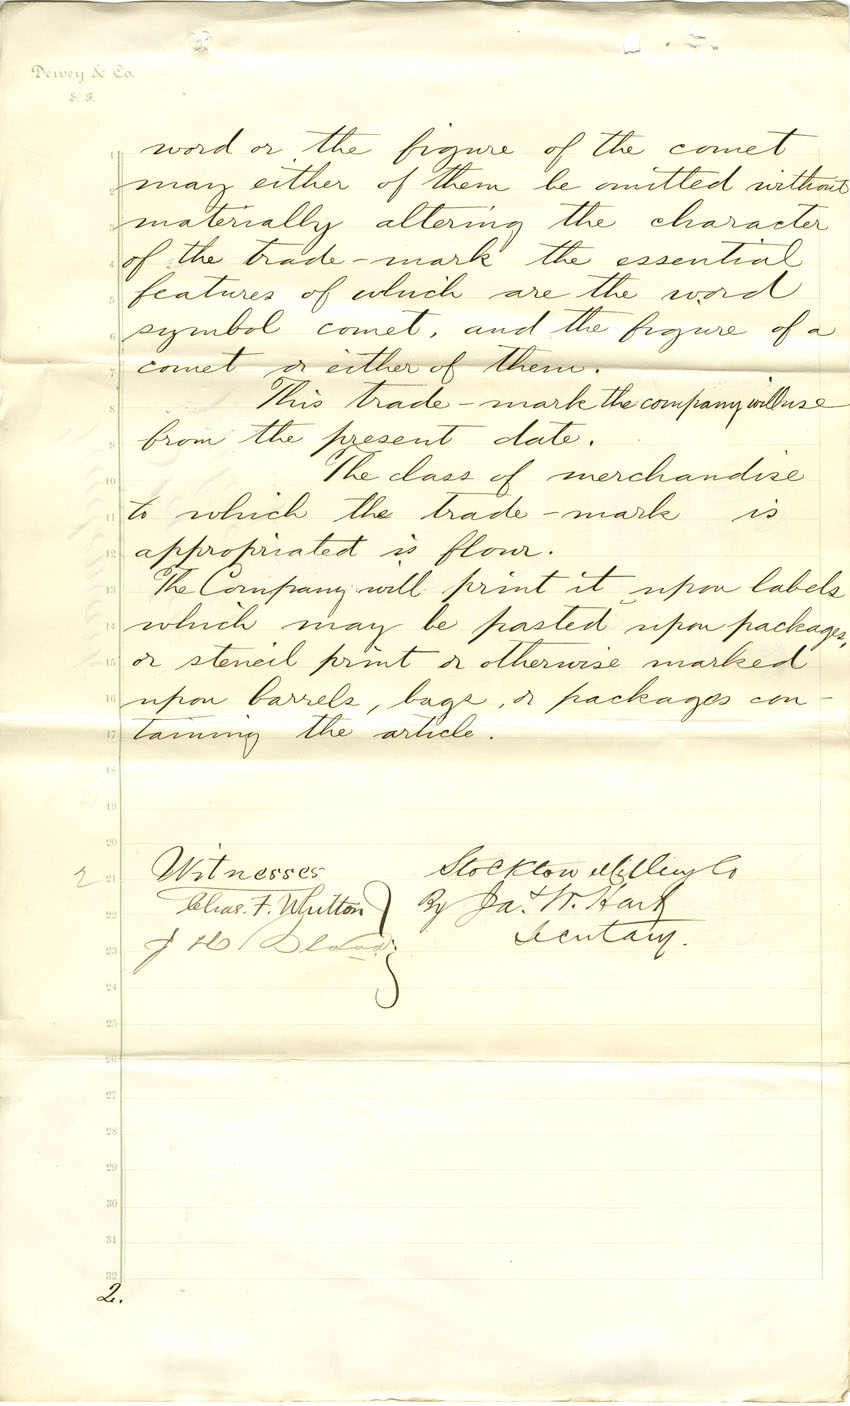 Dewey & Co.
S. F.
1 word or the figure of the comet
2 may either of them be omitted without
3 materially altering the character
4 of the trade-mark the essential
5 features of which are the word
6 symbol comet, and the figure of a
7 comet or either of them.
8 This trade-mark the company will use
9 from the present date.
10 The class of merchandise
11 to which the trade-mark is
12 appropriated is flour.
13 The Company will print it upon labels
14 which may be pasted upon packages,
15 or stencil print or otherwise marked
16 upon barrels, bags, or packages con-
17 taining the article.
18
19
20
2 21 Witnesses Stockton Milling Co
22 Chas. F. Whitton By Jas. W. Hart
23 J Secretary.
24
25
26
27
28
29
30
31
32
2.